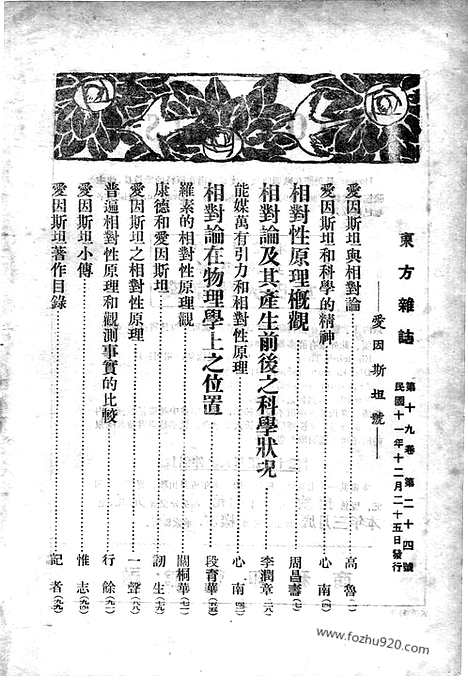 東方雜誌
第十九卷 第二十四號
民國十一年十二月二十五日發行
——愛因斯坦號——
愛因斯坦與相對論 高魯
愛因斯坦和科學的精神 心南
相對性原理概觀 周昌壽
相對論及其產生前後之科學狀況 李潤章
能媒萬有引力和相對性原理 心南
相對論在物理學上之位置 段育華
羅素的相對性原理觀 關桐華
康德和愛因斯坦 韌生
愛因斯坦之相對性原理 一聲
普遍相對性原理和觀測事實的比較 行餘
愛因斯坦小傳 惟志
愛因斯坦著作目錄 記者
www.fozhu920.com